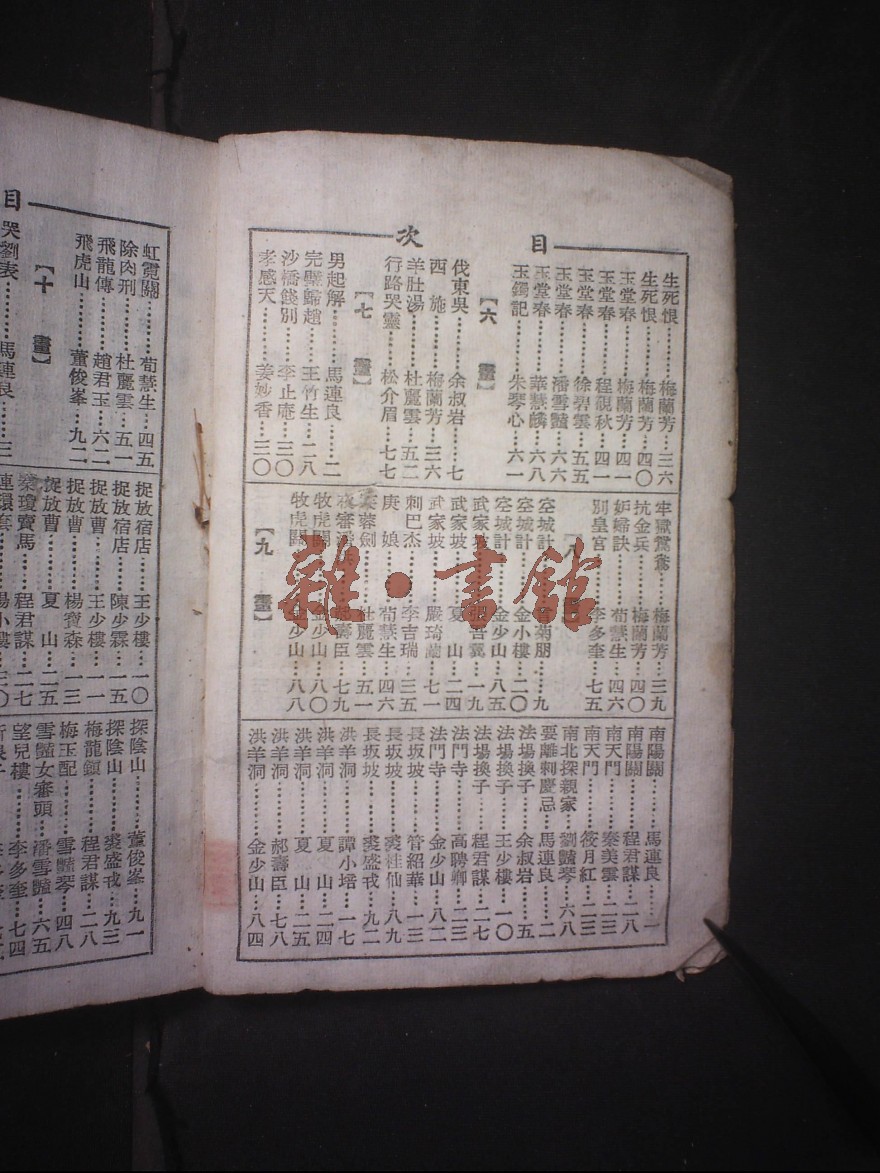 目次
生死恨………梅蘭芳…三六
生死恨………梅蘭芳…四〇
玉堂春………梅蘭芳…四一
玉堂春………程硯秋…四一
玉堂春………徐碧雲…五五
玉堂春………潘雪豔…六六
玉堂春………華慧麟…六八
玉鐲記………朱琴心…六一
【六畫】
伐東吳………余叔岩……七
西　施………梅蘭芳…三六
羊肚湯………杜麗雲…五二
行路哭靈……松介眉…七七
【七畫】
男起解………馬連良……二
完璧歸趙……王竹生…一八
沙橋餞別……李止庵…三〇
孝感天………姜妙香…三〇
牢獄鴛鴦……梅蘭芳…三九
抗金兵………梅蘭芳…四〇
妒婦訣………荀慧生…四六
別皇宮………李多奎…七五
空城計
菊朋……九
空城計………金小樓…二〇
空城計………金少山…八五
武家坡
一九
武家坡………夏　山…二四
武家坡………嚴琦蘭…七一
刺巴杰………李吉瑞…三五
庚　娘………荀慧生…四六
芙蓉劍………杜麗雲…五一
壽臣…七九
牧虎關………金少山…八〇
牧虎關………金少山…八八
【九畫】
南陽關………馬連良……一
南陽關………程君謀…二八
南天門………秦美雲…二三
南天門………筱月紅…二三
南北探親家…劉豔琴…六八
要離刺慶忌…馬連良……二
法場換子……余叔岩……五
法場換子……王少樓…一〇
法場換子……程君謀…二七
法門寺………高聘卿…二三
法門寺………金少山…八二
長坂坡………管紹華…一三
長坂坡………裘桂仙…八九
長坂坡………裘盛戎…九二
洪羊洞………譚小培…一七
洪羊洞………夏　山…二四
洪羊洞………夏　山…二五
洪羊洞………郝壽臣…七八
洪羊洞………金少山…八四
目
虹霓關………荀慧生…四五
除肉刑………杜麗雲…五一
飛龍傳………趙君玉…六二
飛虎山………董俊峯…九二
【十畫】
哭劉表………馬連良……三
捉放宿店……王少樓…一〇
捉放宿店……陳少霖…一五
捉放曹………王少樓…一一
捉放曹………楊寶森…一三
捉放曹………夏　山…二五
秦瓊賣馬……程君謀…二七
連環套
楊小樓…二〇
探陰山………董俊峯…九一
探陰山………裘盛戎…九三
梅龍鎮………程君謀…二八
梅玉配………雪豔琴…四八
雪豔女審頭…潘雪豔…六五
望兒樓………李多奎…七四
雜·書館